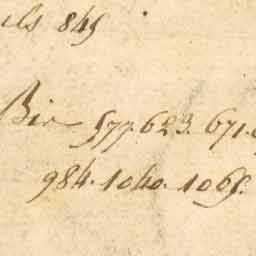 els 845
Bir 577. 623. 671.
984. 1040. 1065.